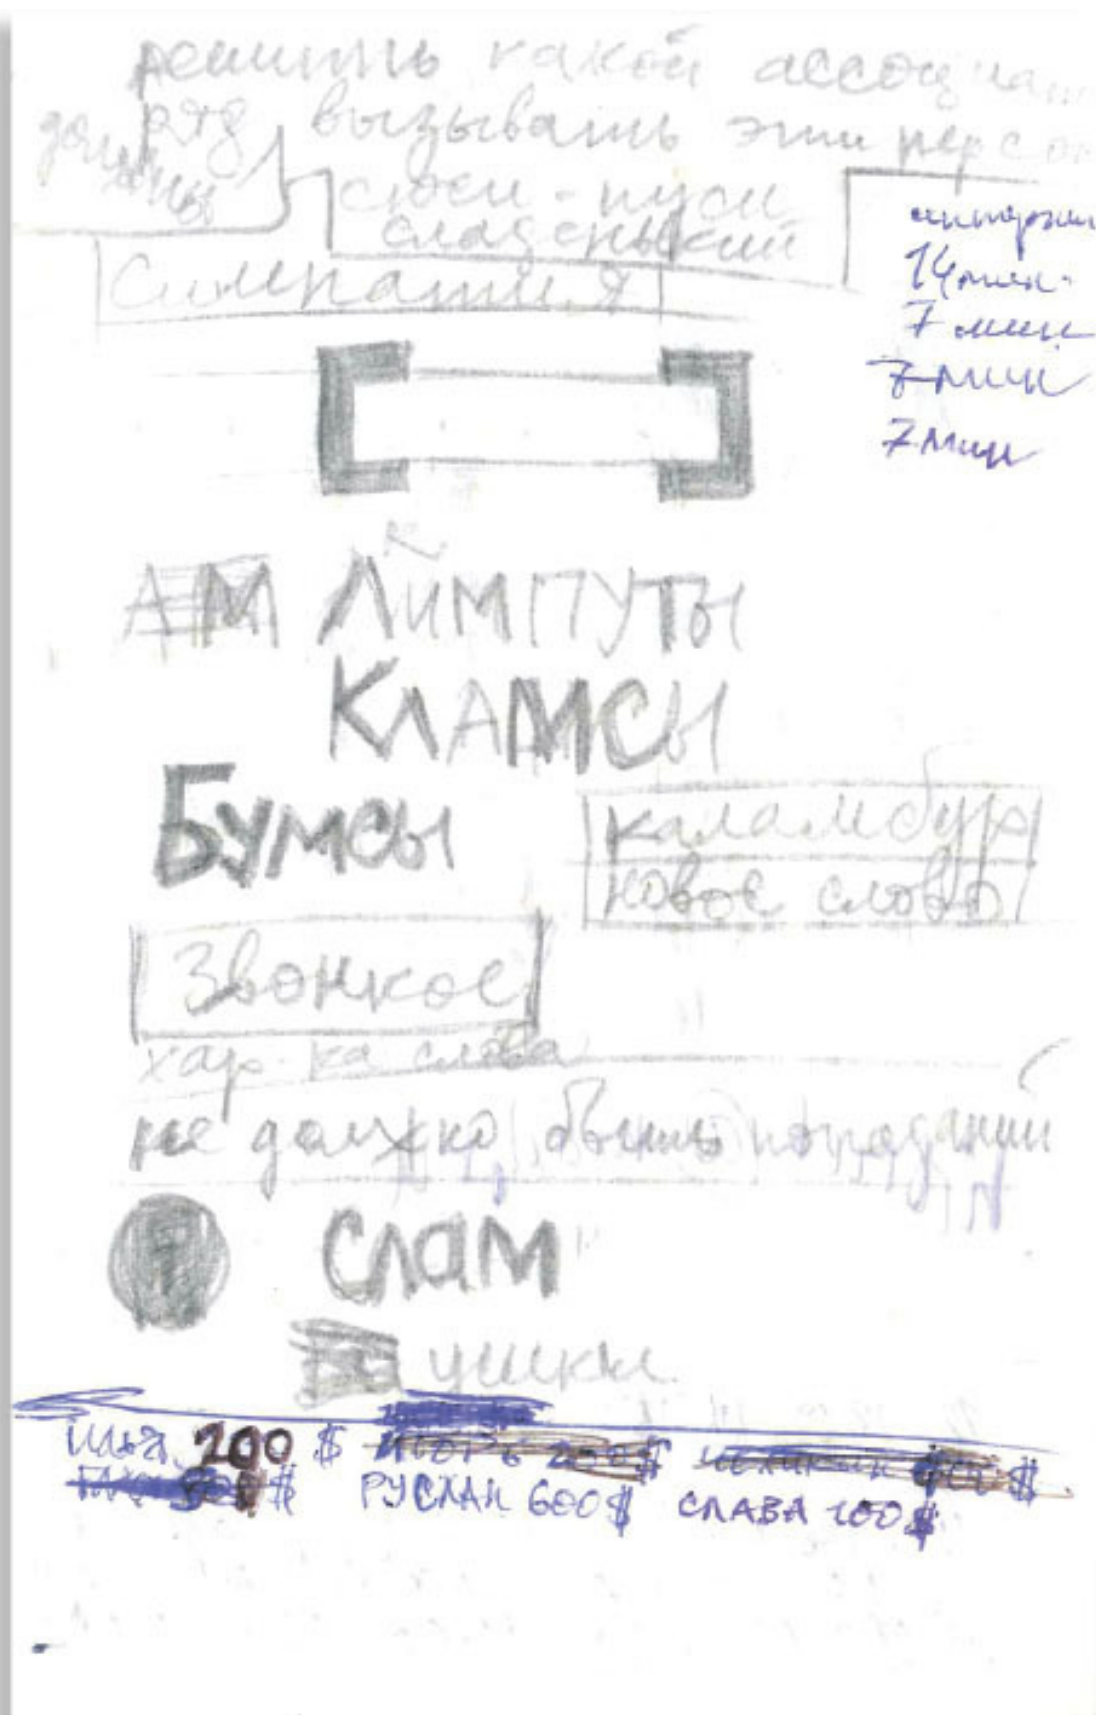 решить какой ассоциа
ряд вызывать эти персон
должны
сюси-пуси
сладенький
Симпатия
14 мин.
7 мин
7 мин
7 мин
АМ Лймпуты
Клампсы
Бумсы
каламбур
новое слово
Звонкое
хар-ка слова
не должно быть попаданий
слам
ушки
Илья 200 $ Игорь 200 $
РУСЛАН 600 $ СЛАВА 100 $